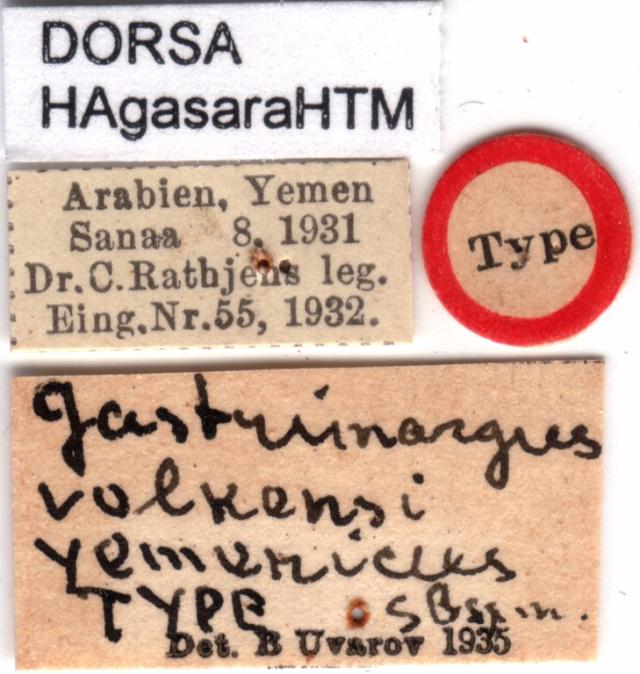 DORSA
HAgasaraHTM
Arabien, Yemen
Sanaa 8. 1931
Dr.C.Rathjens leg.
Eing.Nr.55, 1932.
Type
Gastrimargus
volkensi
yemenicus
TYPE
Det. B Uvarov 1935